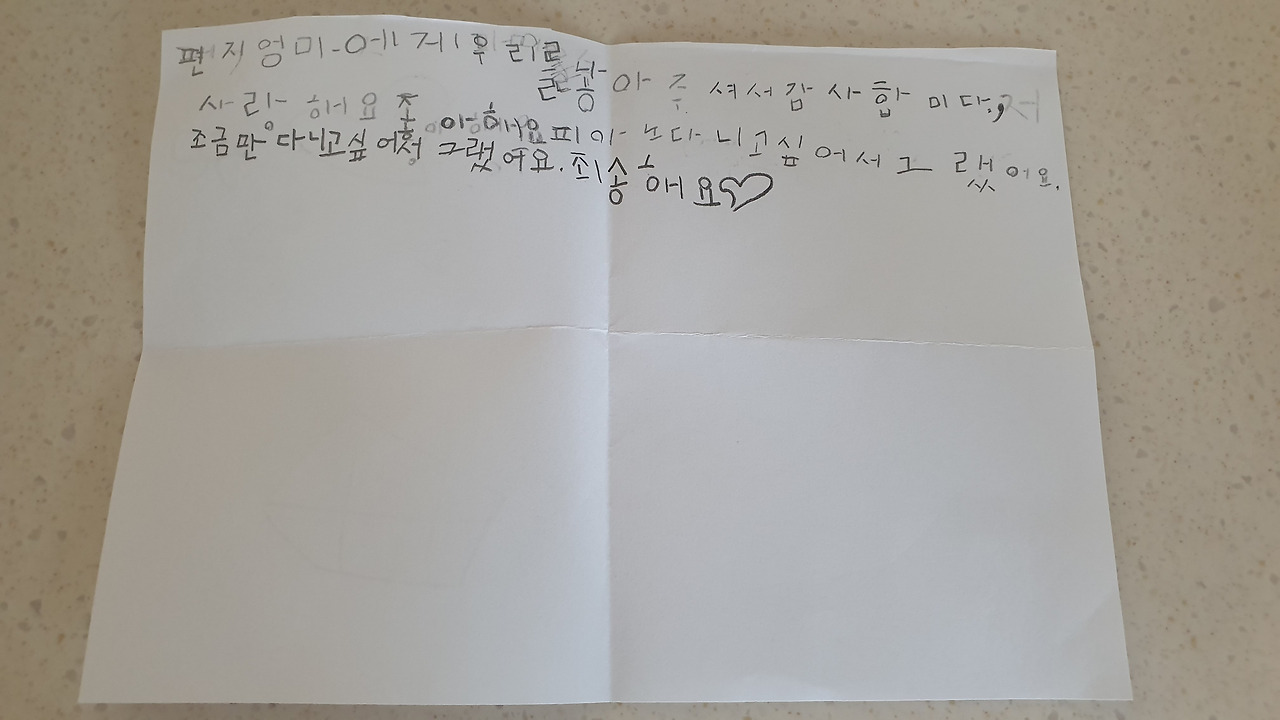 편지엉미-에게 후리를
를 농아주셔서감사합미다,
사랑해요 좋아해요 피아노다니고싶어서그랬어요.
조금만다니고싶어서 그랬어요. 죄송해요♡